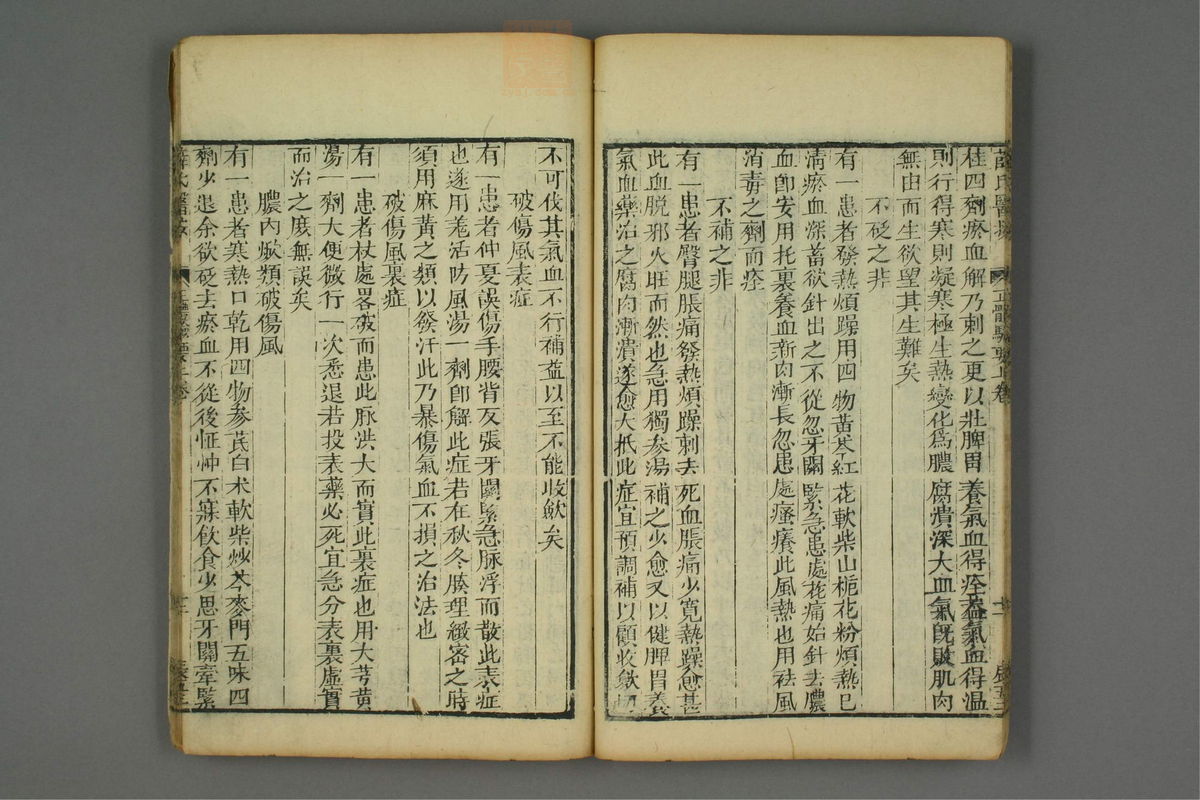 桂四劑瘀血解乃刺之更以壯脾胃養氣血得痊蓋氣血得温
則行得寒則凝寒極生熱變化爲膿腐潰深大血氣既敗肌肉
無由而生欲望其生難矣
不砭之非
有一患者發熱煩躁用四物黃芩紅花軟柴山梔花粉煩熱已
清瘀血深蓄欲針出之不從忽牙關緊急患處花痛始針去膿
血即安用托裏養血新肉漸長忽患處瘙癢此風熱也用祛風
消毒之劑而痊
不補之非
有一患者臀腿脹痛發熱煩躁刺去死血脹痛少寬熱躁愈甚
此血脫邪火旺而然也急用獨參湯補之少愈又以健脾胃養
氣血藥治之腐肉漸潰遂愈大抵此症宜預調補以顧收斂切
不可伐其氣血不行補益以至不能收斂矣
破傷風表症
有一患者仲夏誤傷手腰背反張牙關緊急脉浮而散此表症
也遂用羗活防風湯一劑即解此症若在秋冬腠理緻密之時
須用麻黃之類以發汗此乃暴傷氣血不損之治法也
破傷風裏症
有一患者杖處畧破而患此脉洪大而實此裏症也用大芎黃
湯一劑大便微行一次悉退若投表藥必死宜急分表裏虛實
而治之庶無誤矣
膿內焮類破傷風
有一患者寒熱口乾用四物參芪白术軟柴炒芩麥門五味四
劑少退余欲砭去瘀血不從後怔忡不寐飲食少思牙關牽緊